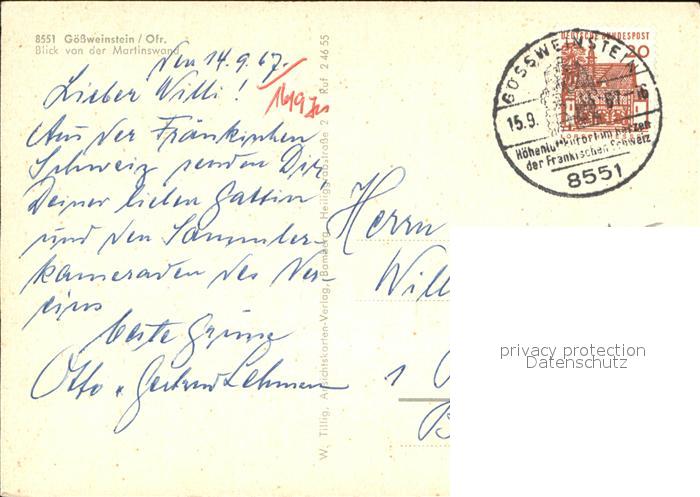 8551 Gößweinstein / Ofr.
Blick von der Martinswand
Den 14.9.67.
Lieber Willi!
16/9
Aus der Fränkischen
Schweiz senden Dir,
Deiner lieben Gattin
und den Sammler-
kameraden des Ver-
eins
beste Grüsse
Otto u. Gertrud Lehmann
W. Tillig, Ansichtskarten-Verlag, Bamberg, Heiliggrabstraße 2 Ruf 2 46 55
DEUTSCHE BUNDESPOST
20
GÖSSWEINSTEIN
15.9.67-16
Höhenluftkurort im Herzen
der Fränkischen Schweiz
8551
Herrn
Will
1
B
privacy protection
Datenschutz